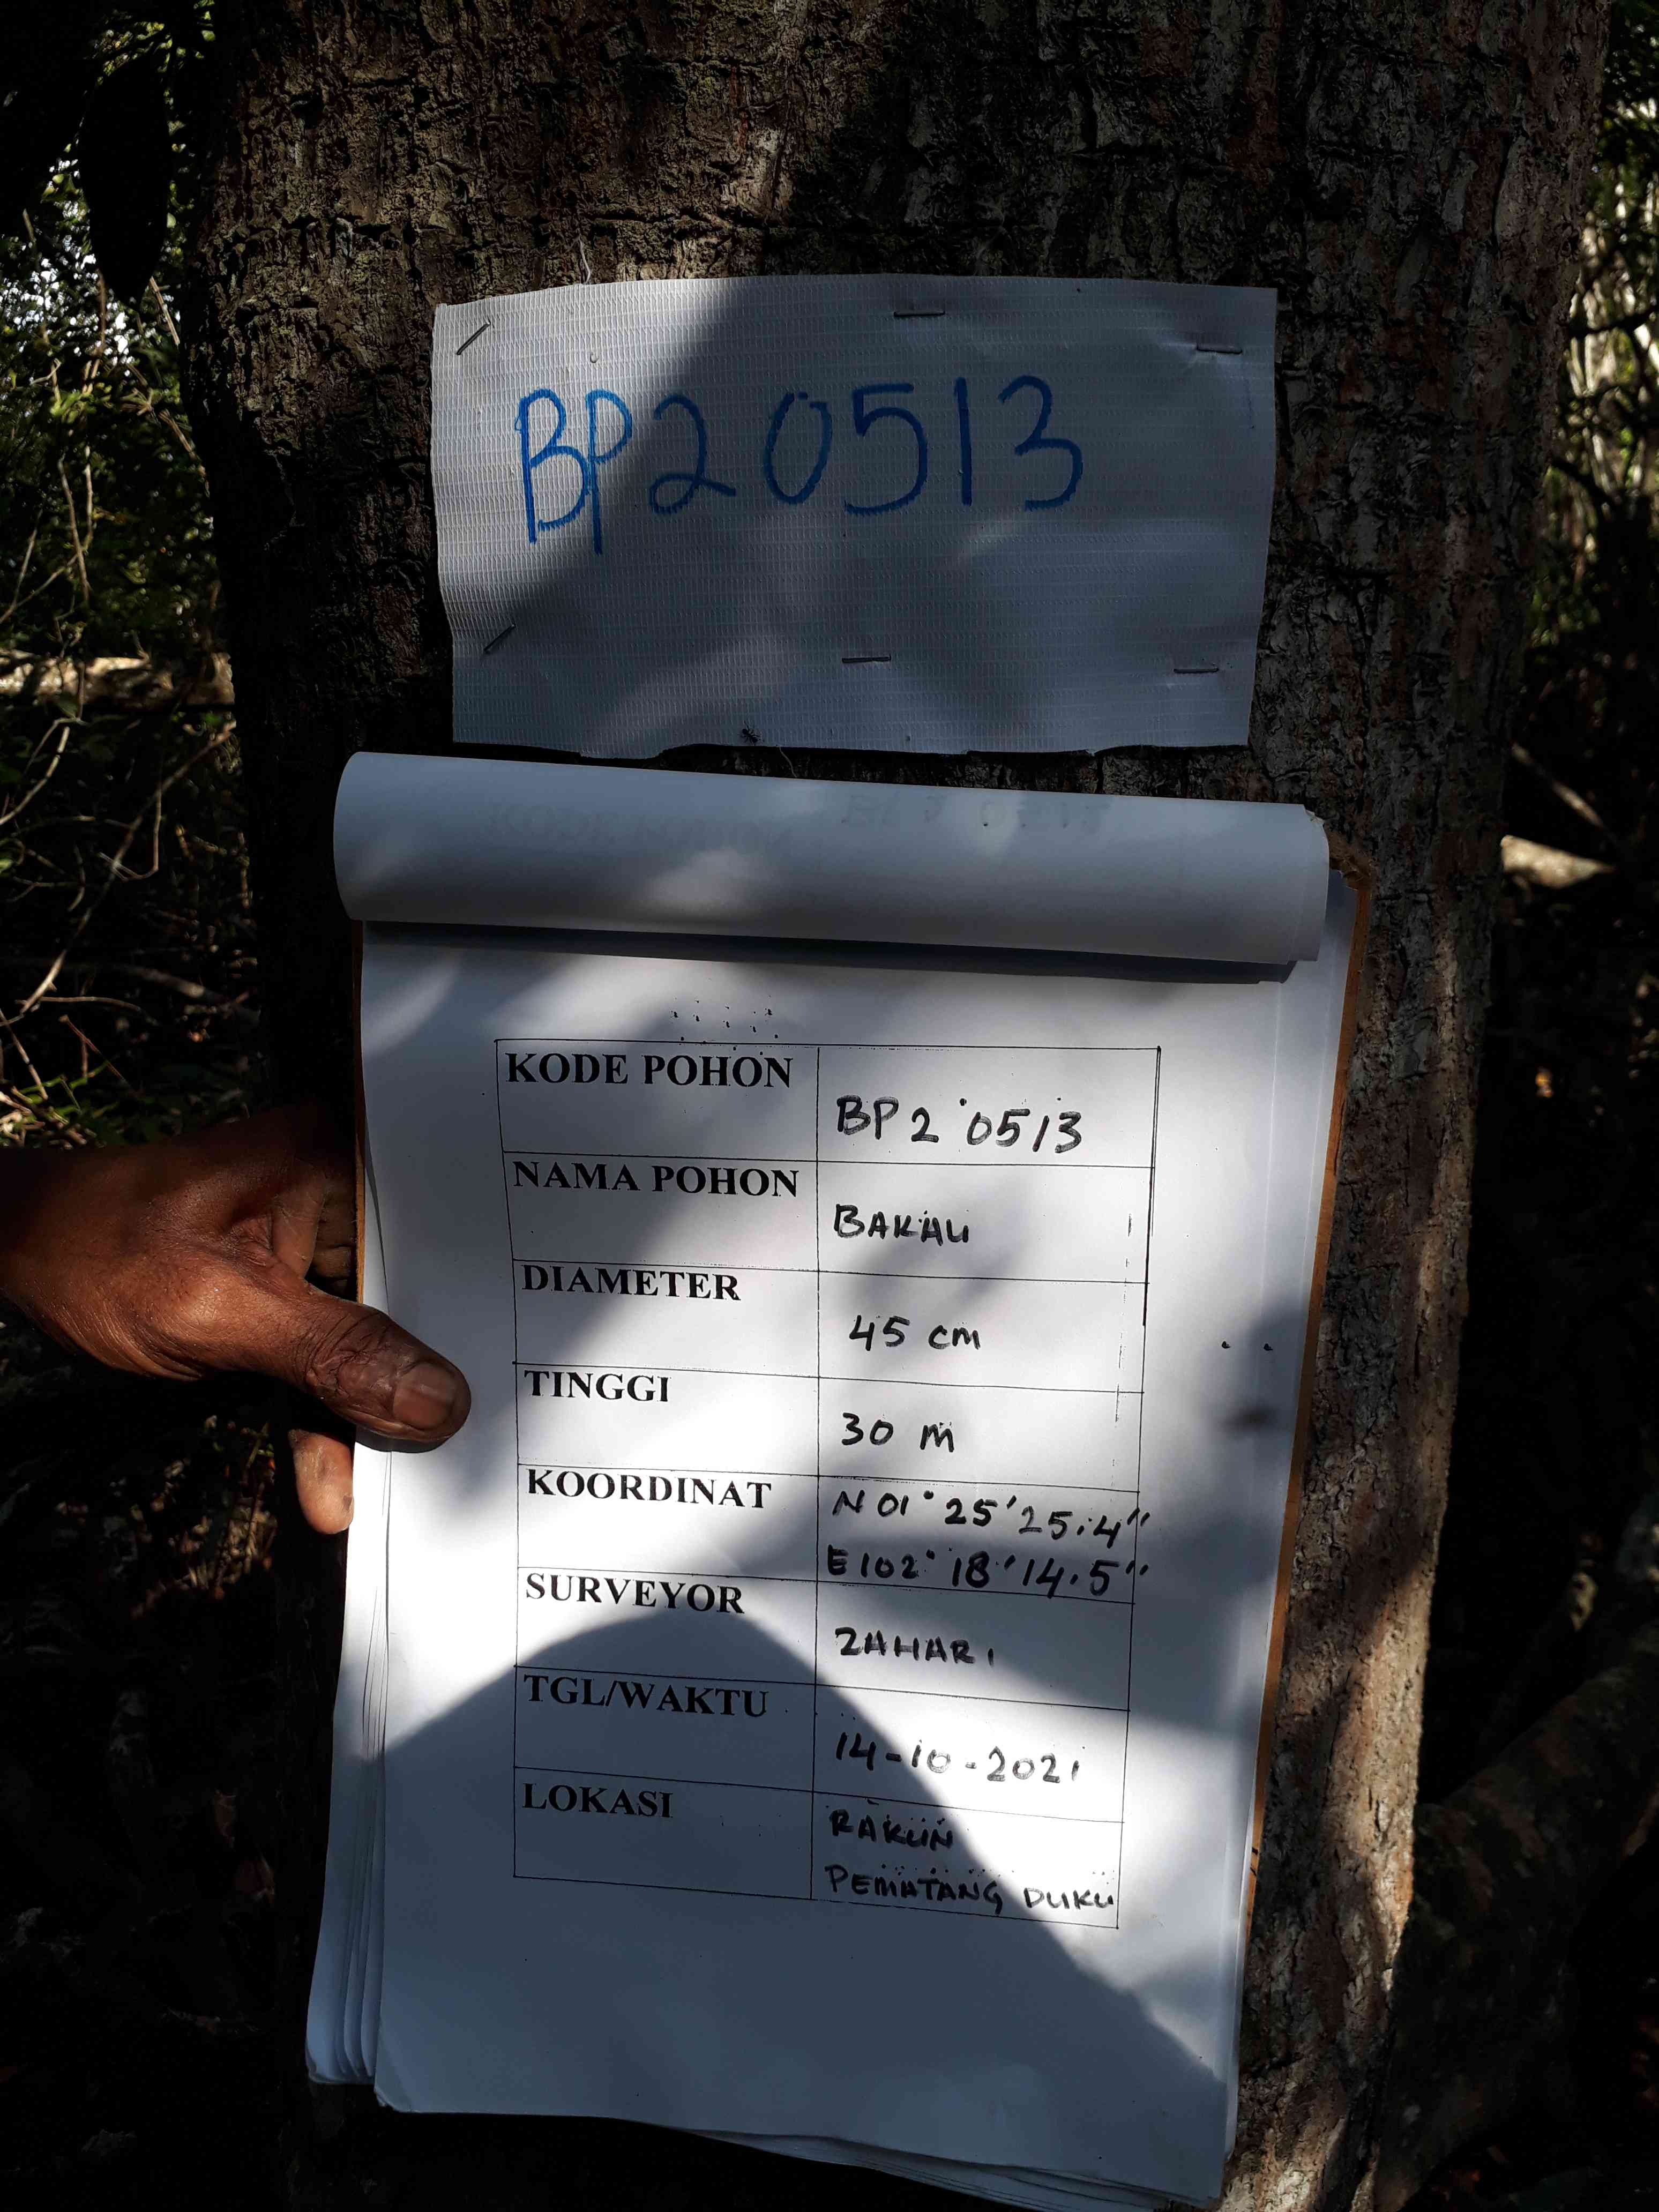 BP20513
KODE POHON
BP2 0513
NAMA POHON
BAKAU
DIAMETER
45 cm
TINGGI
30 m
KOORDINAT
N 01° 25' 25.4"
E 102° 18' 14.5"
SURVEYOR
ZAHARI
TGL/WAKTU
14-10-2021
LOKASI
RAKUN
PEMATANG DUKU